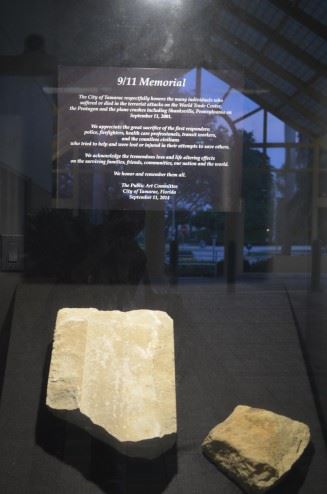 9/11 Memorial
The City of Tamarac respectfully honors the many individuals who
suffered or died in the terrorist attacks on the World Trade Center,
the Pentagon and the plane crashes including Shanksville, Pennsylvania on
September 11, 2001.
We appreciate the great sacrifice of the first responders:
police, firefighters, health care professionals, transit workers,
and the countless civilians
who tried to help and were lost or injured in their attempts to save others.
We acknowledge the tremendous loss and life altering effects
on the surviving families, friends, communities, our nation and the world.
We honor and remember them all.
The Public Art Committee
City of Tamarac, Florida
September 11, 2014